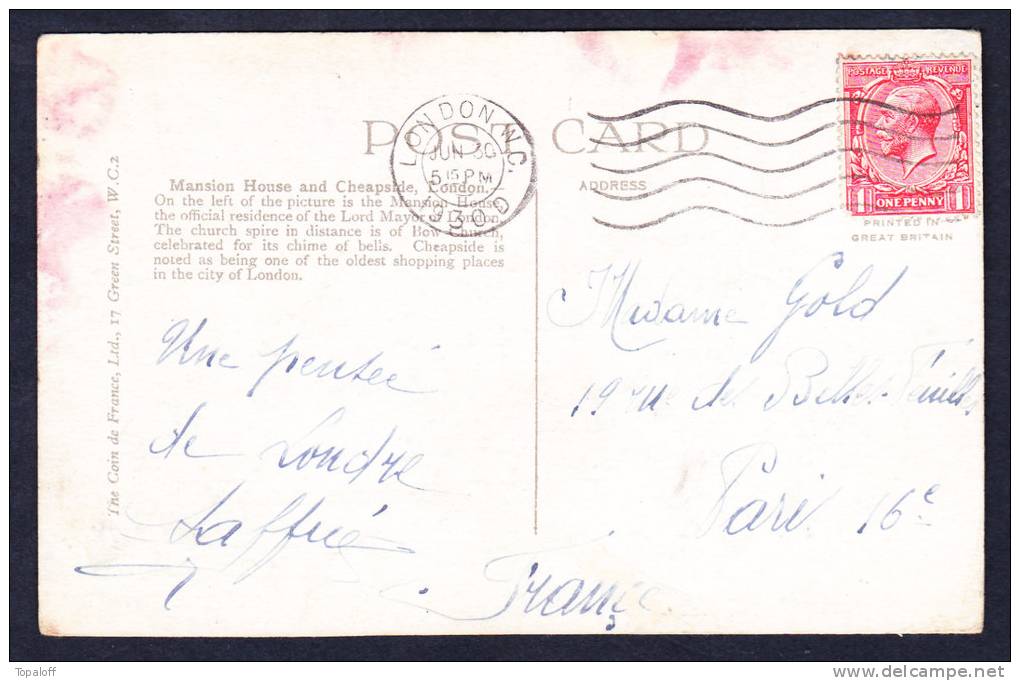 POST CARD
LONDON. N.C.
JUN 30
5 15 PM
1930
D
POSTAGE REVENUE
1 ONE PENNY 1
PRINTED IN
GREAT BRITAIN
Mansion House and Cheapside, London.
On the left of the picture is the Mansion House,
the official residence of the Lord Mayor of London.
The church spire in distance is of Bow Church,
celebrated for its chime of bells. Cheapside is
noted as being one of the oldest shopping places
in the city of London.
ADDRESS
The Coin de France, Ltd., 17 Green Street, W.C.2
Une pensée
de Londre
Madame Gold
19 rue des Belles Feuilles
Paris 16e
France
Topaloff
www.delcampe.net